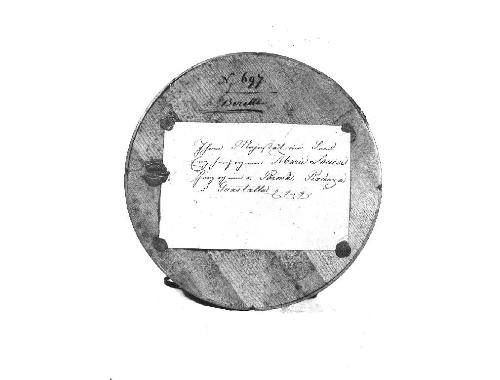 N. 697
Beretta
Ihrer Majestät der Frau
Erzherzoginn Maria Louise
Herzoginn v. Parma Piacenza
Guastalla etc. etc.